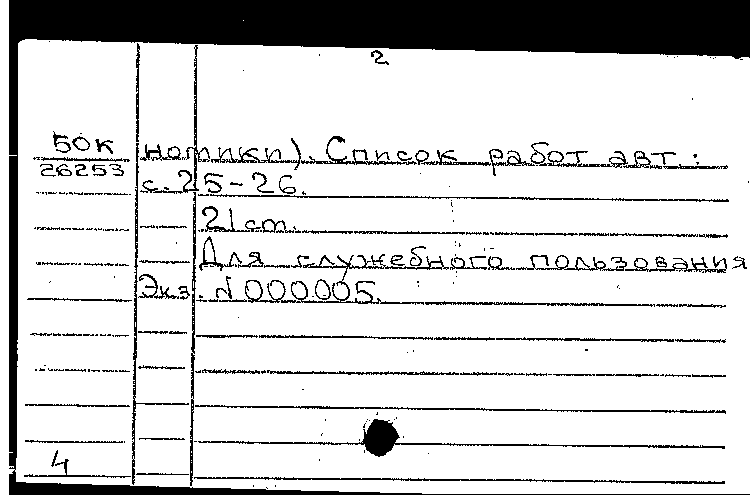 2
50К
26253
номики). Список работ авт.:
с. 25-26.
21 см.
Для служебного пользования
Экз. № 000005.
4